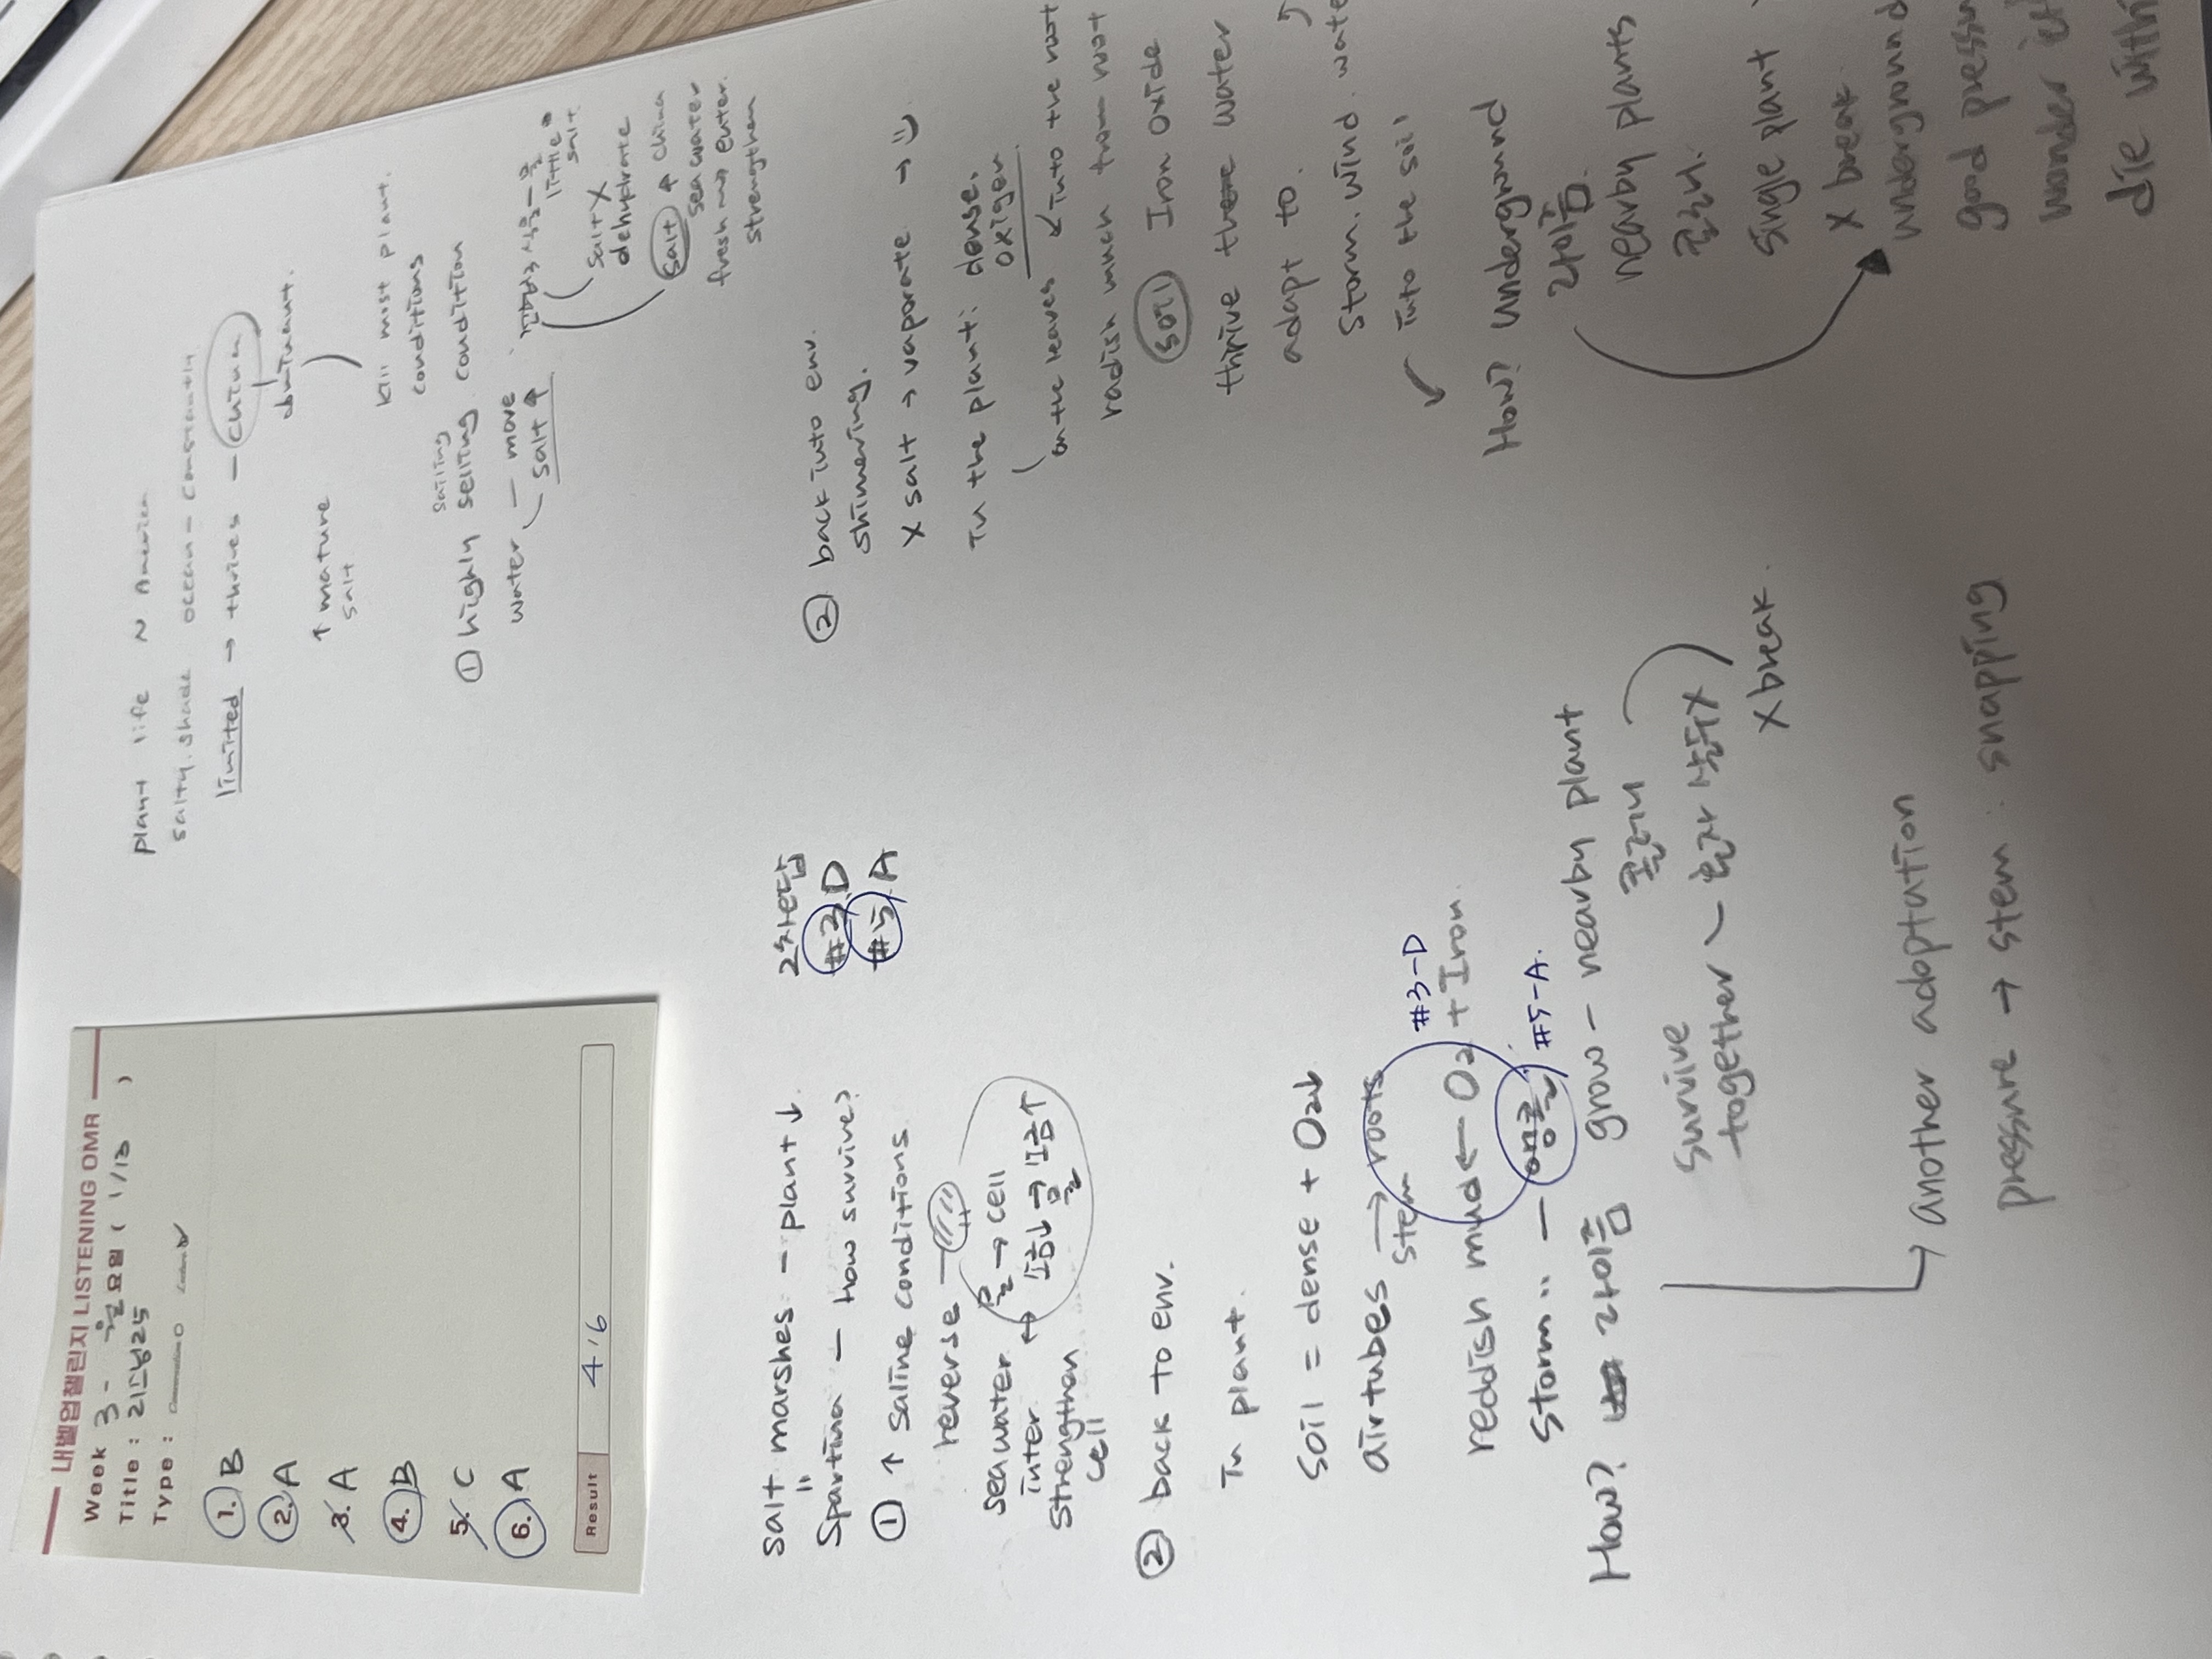 내벨업챌린지 LISTENING OMR
Week 3 - 월요일 ( 1/13 )
Title : 리스닝25
Type :
1. B
2. A
3. A
4. B
5. C
6. A
Result 4/6
2차답
#3 D
#5 A
salt marshes - plant ↓
"
Spartina - how survive?
① ↑ saline conditions
reverse
sea water 물 → cell
inter ↔ 소금↓ → 소금↑
물
strengthen
cell
② back to env.
In plant.
Soil = dense + O₂↓
airtubes → roots
stem
#3-D
reddish mud ← O₂ + Iron
Storm .. -
#5-A.
How? 라이좀 grow - nearby plant
줄기
survive
together - 혼자 살수X
X break.
another adaptation
pressure → stem snapping
plant life ~ America
salty. shade ocean - constantly.
limited → thrives -
↑ mature
salt
kill most plant.
conditions
salting
① highly setting condition
water - move
salt ↑
little
salt
salt X
dehydrate
salt ↑
sea water
fresh enter
strengthen
② back into env.
shimmering.
X salt → vaporate →
In the plant: dense.
oxigen
on the leaves ← into the root
radish much from root
soil Iron oxide
thrive there water
adapt to.
Storm. wind. wate
into the soil
How? underground
라이좀.
nearby plants
줄기.
Single plant
X break
underground
good pressu
wonder
die with